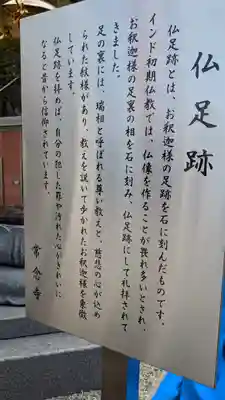 仏足跡
仏足跡とは、お釈迦様の足跡を石に刻んだものです。
インド初期仏教では、仏像を作ることが畏れ多いとされ、
お釈迦様の足裏の相を石に刻み、仏足跡にして礼拝されて
きました。
足の裏には、瑞相と呼ばれる尊い教えと、慈悲の心が込め
られた紋様があり、教えを説いて歩かれたお釈迦様を象徴
しています。
仏足跡を拝めば、自分の犯した罪や汚れた心がきれいに
なると昔から信仰されています。
常念寺